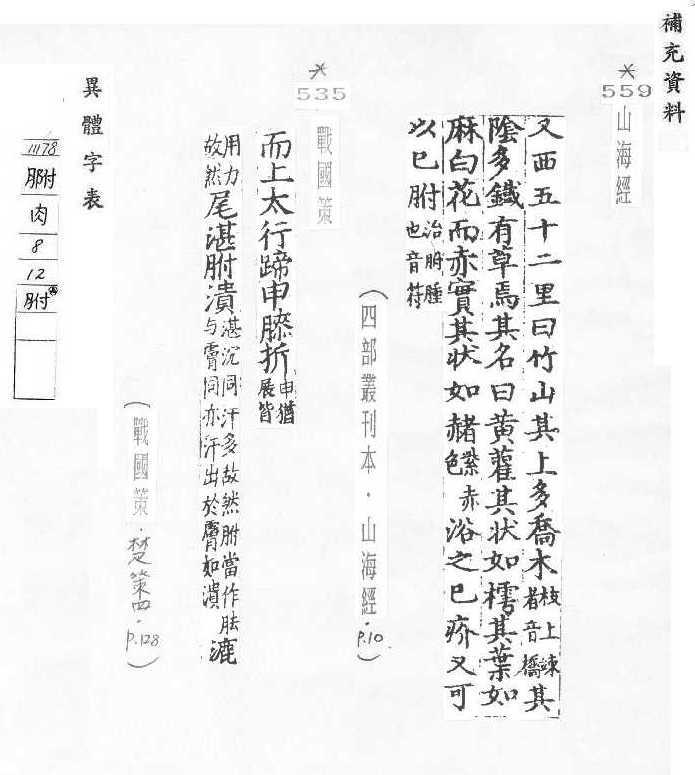 補充資料
*
559
山海經
又西五十二里曰竹山其上多喬木枝上竦者音橋其
陰多鐵有草焉其名曰黄雚其状如樗其葉如
麻白花而赤實其状如赭紫赤色浴之已疥又可
以已胕治胕腫也音符
(四部叢刊本·山海經·P.10)
*
535
戰國策
而上太行蹄申膝折申猶展皆
用力故然尾湛胕潰湛沉同汗多故然胕當作胠漉
与膚同亦汗出於膚如潰
(戰國策·楚策四·P.128)
異體字表
11178
胕
肉
8
12
胕